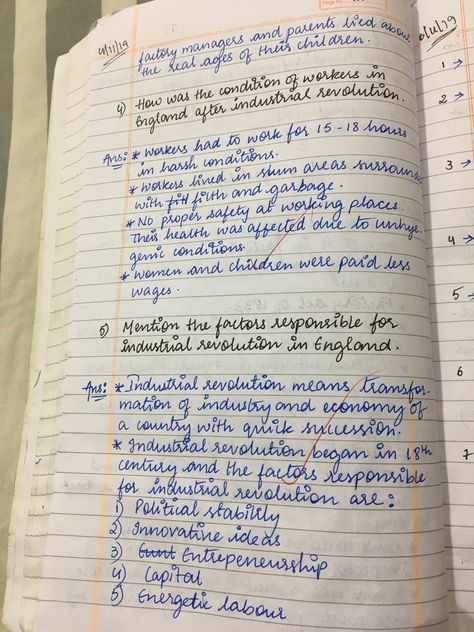 4/11/19
factory managers and parents lied about
the real ages of their children.
4) How was the condition of workers in
England after industrial revolution.
Ans: * Workers had to work for 15-18 hours
in harsh conditions.
* Workers lived in slum areas surround
with fil filth and garbage.
* No proper safety at working places.
Their health was affected due to unhye-
genic conditions.
* Women and children were paid less
wages.
5) Mention the factors responsible for
industrial revolution in England.
Ans: * Industrial revolution means transfor-
mation of industry and economy of
a country with quick succession.
* Industrial revolution began in 18th
century and the factors responsible
for industrial revolution are:
1) Political stability
2) Innovative ideas
3) Entrepeneurship
4) Capital
5) Energetic labour
6/11/19
1 →
2 →
3 →
4 →
5 →
6
7